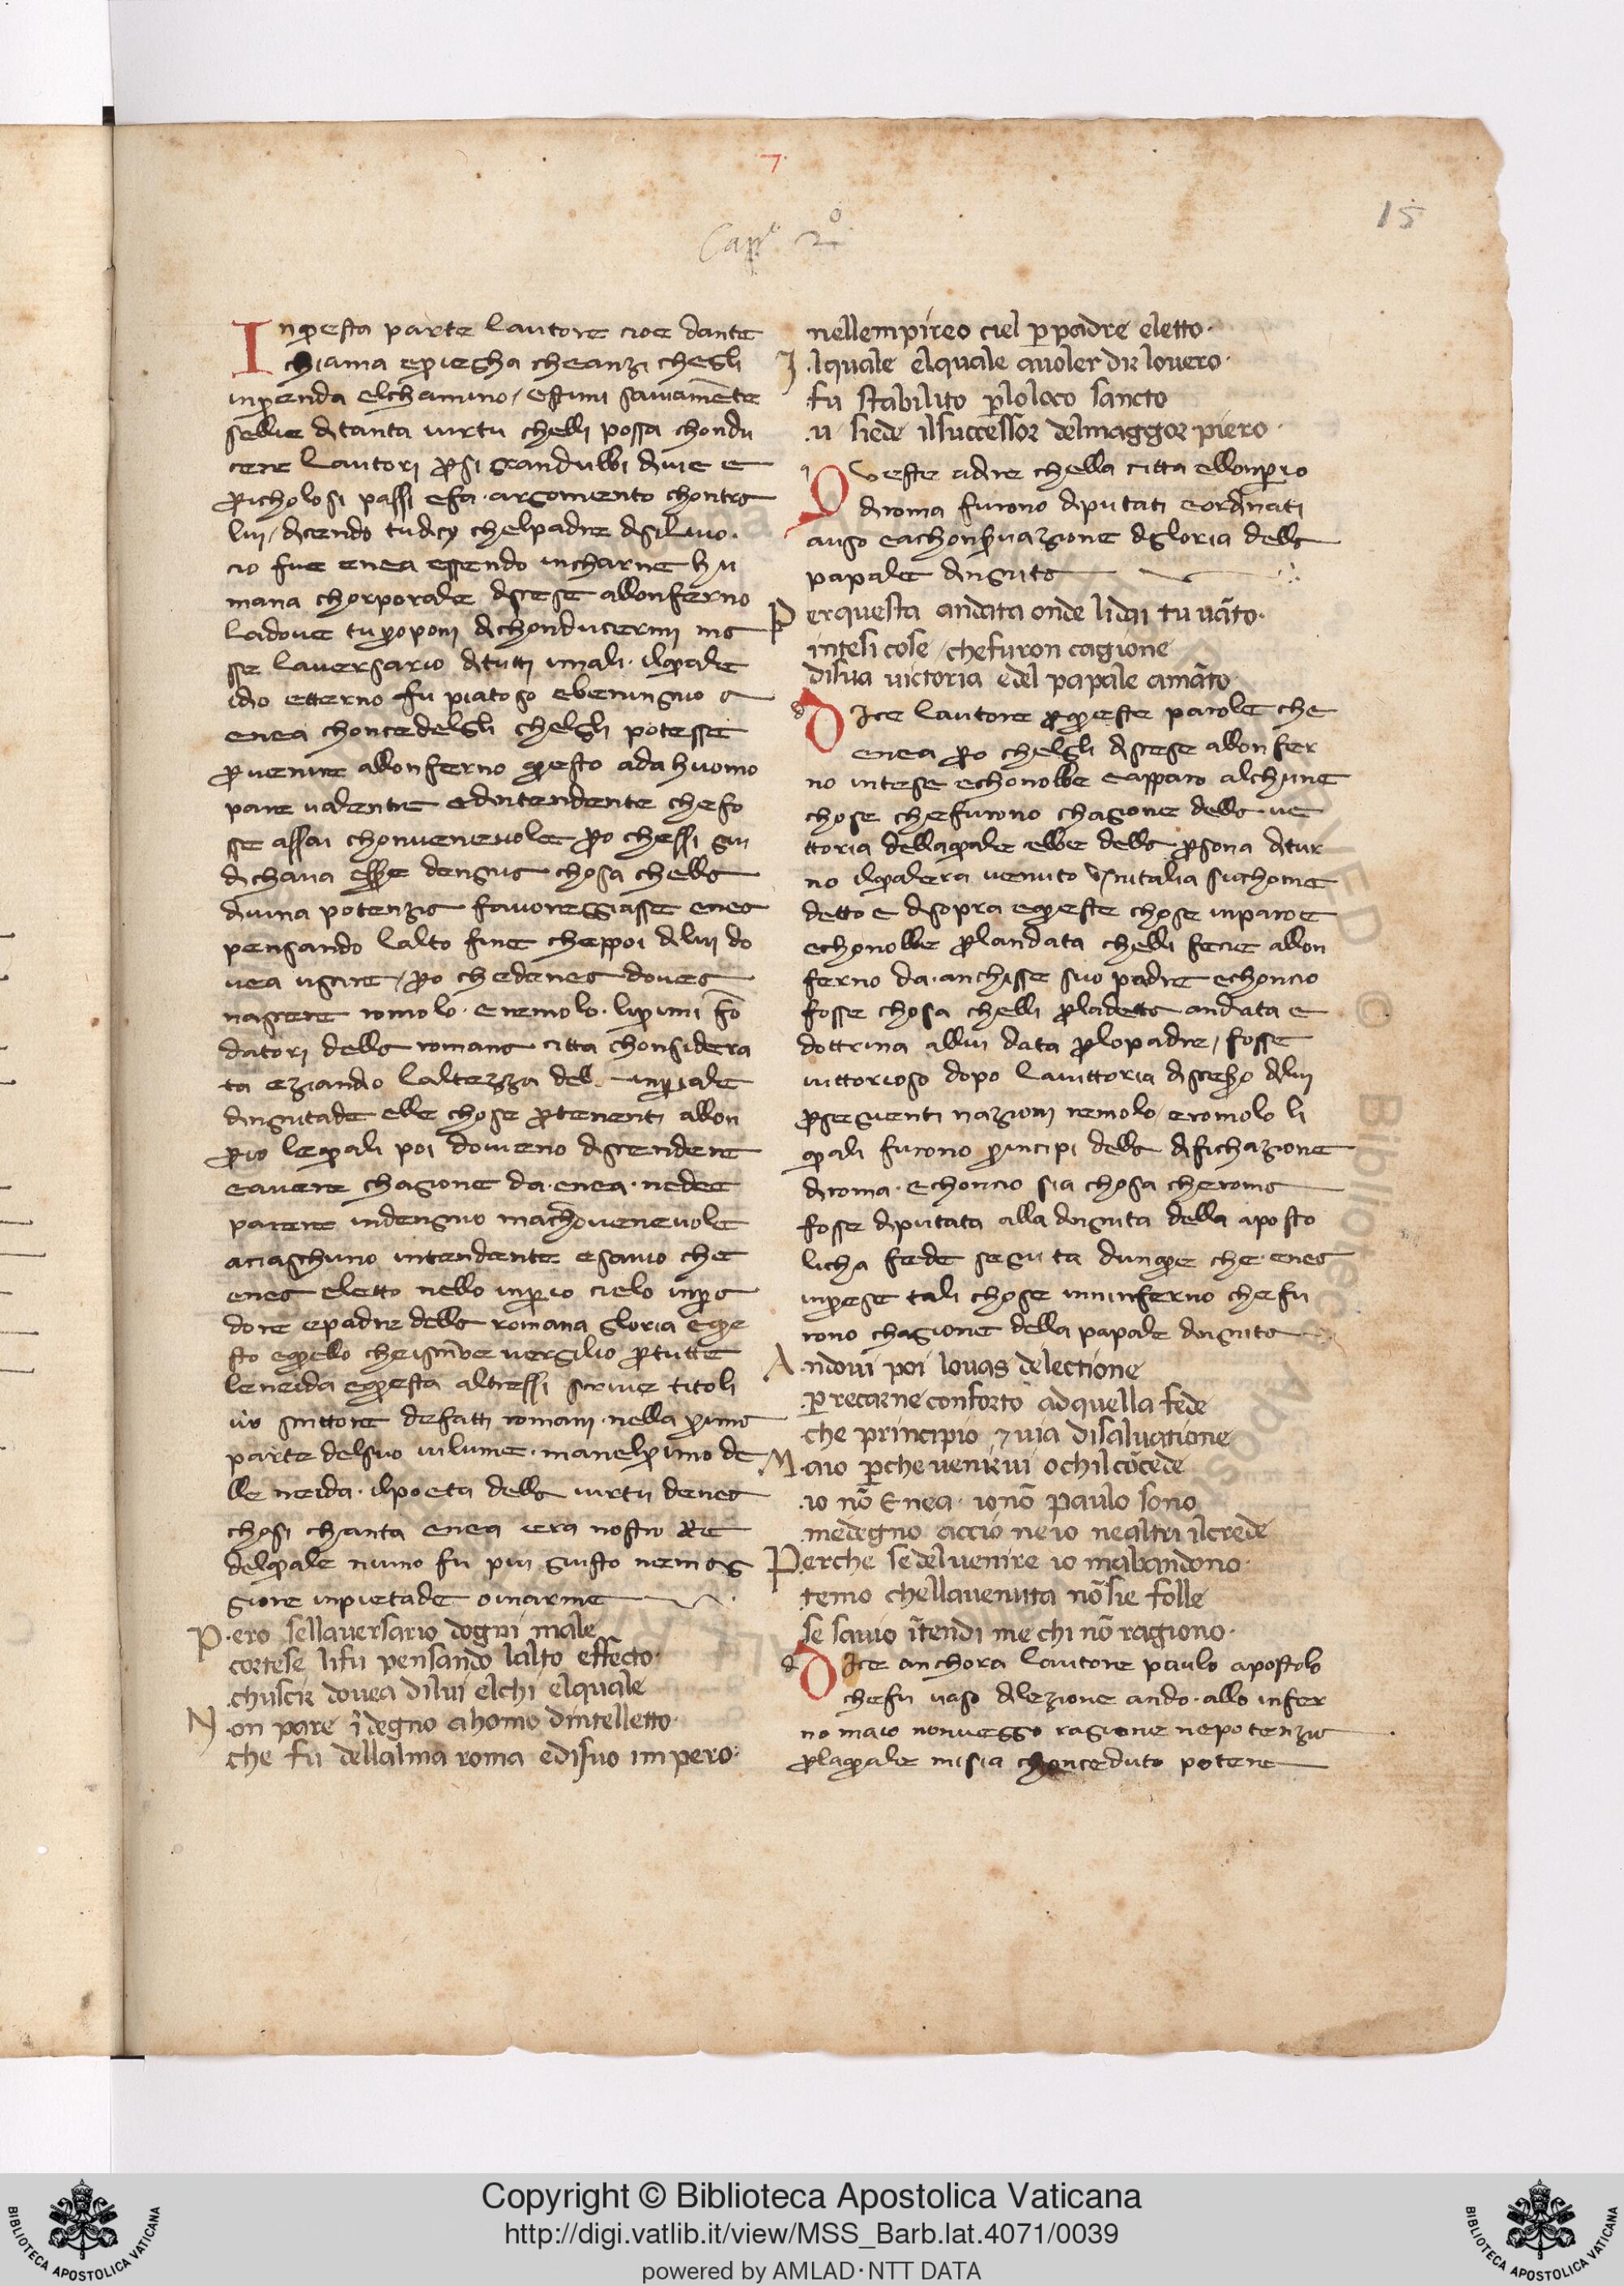 7
15
Cap.e 2o
In questa parte lautore cioe dante
chiama e priegha che anzi chegli
inprenda elchamino / estimi saviamente
sellie di tanta virtu chelli possa chondu
cere lautori per si grandubbi di vie e
pericholosi passi e fa argomento chontra
lui / dicendo tudicy chelpadre disilvio.
cio fue enea essendo incharne hu
mana chorporale discese allonferno
ladove tu proponi di chonducermi ma
sse laversario di tutti imali. ilquale
idio etterno fu piatoso e beningnio a
enea choncedelgli chelgli potesse
pervenire allonferno questo ada huomo
pare valentre edintendente che fo
sse assai chonvenevole pero chessi giu
dichava essere dengnia chosa chella
divina potenzia favoreggiasse enea
pensando lalto fine cheppoi di lui do
vea uscire / pero che denea dovea
nascere romolo. e remolo. liprimi fon
datori della romana citta chonsidera
ta eziandio laltezza dell inperiale
dingnitade elle chose pertenenti allon
perio lequali poi dovieno discendere
e avere chagione da. enea. ne dee
parere indengnio machonvenevole
aciaschuno intendente e savio che
enea eletto nello inperio cielo inpera
dore e padre della romana gloria e que
sto equello cheiscrive vergilio pertutte
leneida equesta altressi scrive titoli
vio scrittore defatti romani. nella prima
parte delsuo vilume. manelprimo de
lle neida. ilpoeta della virtu denea
chosi chanta enea iera nostro Re
delquale niuno fu piu giusto nemag
giore inpietade o inarme
Pero sellaversario dogni male
cortese lifu pensando lalto effecto.
chuscir dovea dilui elchi elquale
Non pare indegno ahomo dintelletto.
che fu dellalma roma edisuo impero.
nellempireo ciel per padre eletto.
Ilquale elquale avoler dir lovero.
fu stabilito perloloco sancto
u siede ilsuccessor delmaggor piero.
Queste adire chella citta ellonperio
diroma furono diputati e ordinati
auso e achonservazione digloria della
papale dingnita
Perquesta andata onde lidai tu vanto.
intesi cose / chefuron cagione
disua victoria edel papale amanto.
Dice lautore perqueste parole che
enea pero chelgli discese allonfer
no intese echonobbe e apparo alchune
chose chefurono chagione della ve
ttoria dellaquale ebbe della persona ditur
no ilqualera venuto in italia sichome
detto e disopra equeste chose inparo e
echonobbe perlandata chelli fecie allon
ferno da. anchisse suo padre echoncio
fosse chosa chelli perladetta andata e
dottrina allui data perlopadre / fosse
vittorioso dopo lavittoria discieso dilui
perseguenti nazioni remolo / eromolo li
quali furono principi della dificazione
diroma. echoncio sia chosa cheroma
fosse diputata alla dingnita della aposto
licha fede seguita dunque che. enea
inprese tali chose inninferno chefu
rono chagione della papale dingnita
Andovi poi lovas delectione
per recarne conforto adquella fede
che principio 7 via disalvatione
Maio perche venirvi ochilconcede
io non Enea. ionon paulo sono
medegno accio neio nealtri ilcrede
Perche sedelvenire io mabandono.
temo chellavenuta nonsie folle
se savio intendi me chi non ragiono.
Dice anchora lautore paulo apostolo
chefu vaso dilezione ando. allo infer
no maio nonveggo ragione nepotenzia
perlaquale misia chonceduto potere
Copyright © Biblioteca Apostolica Vaticana
http://digi.vatlib.it/view/MSS_Barb.lat.4071/0039
powered by AMLAD·NTT DATA
BIBLIOTECA APOSTOLICA VATICANA
BIBLIOTECA APOSTOLICA VATICANA